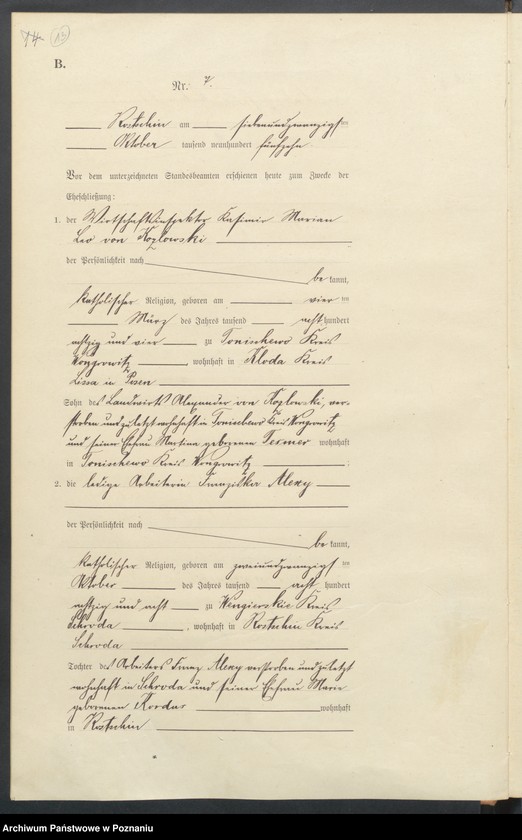 14 12
B.
Nr. 7.
Rostschin am siebenundzwanzigsten
Oktober tausend neunhundert fünfzehn
Vor dem unterzeichneten Standesbeamten erschienen heute zum Zwecke der
Eheschließung:
1. der Wirtschaftsinspektor Kasimir Marian
Leo von Kozlowski
der Persönlichkeit nach
be kannt,
katholischer Religion, geboren am vier ten
März des Jahres tausend acht hundert
achtzig und vier zu Tonischewo Kreis
Wongrowitz, wohnhaft in Kloda Kreis
Lissa in Posen
Sohn des Landwirts Alexander von Kozlowski, ver-
storben und zuletzt wohnhaft in Tonischewo Kreis Wongrowitz
und seiner Ehefrau Martina geborenen wohnhaft
in Tonischewo Kreis Wongrowitz.
2. die ledige Arbeiterin Franziska Alexy
der Persönlichkeit nach
be kannt,
katholischer Religion, geboren am zweiundzwanzigsten
Oktober des Jahres tausend acht hundert
achtzig und acht zu Wengierskie Kreis
Schroda, wohnhaft in Rostschin Kreis
Schroda
Tochter des Arbeiters Franz Alexy verstorben und zuletzt
wohnhaft in Schroda und seiner Ehefrau Marie
geborenen Kordus wohnhaft
in Rostschin
Archiwum Państwowe w Poznaniu